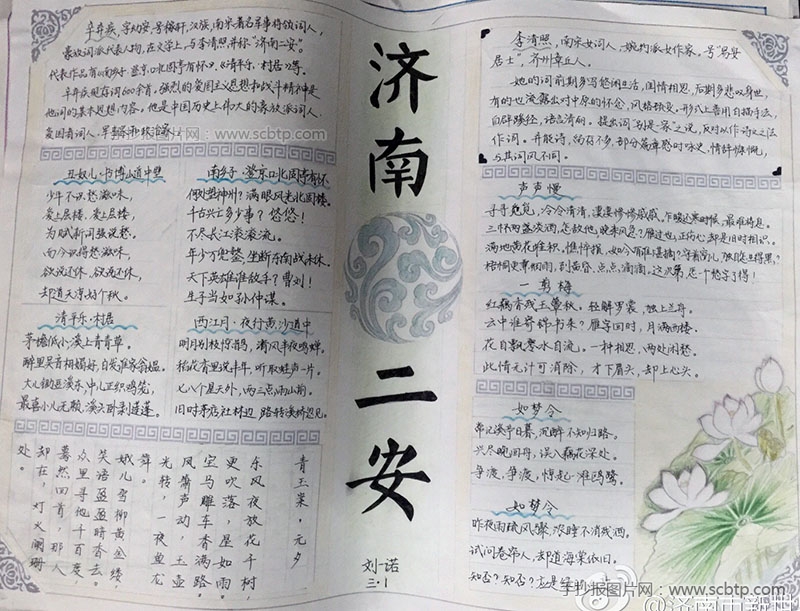 辛弃疾,字幼安,号稼轩,汉族,南宋著名军事将领词人,
豪放词派代表人物,在文学上,与李清照并称"济南二安"。
代表作品有《南乡子·登京口北固亭有怀》《清平乐·村居》等。
辛弃疾现存词600余首,强烈的爱国主义思想和战斗精神是
他词的基本思想内容。他是中国历史上伟大的豪放派词人、
爱国者词人、军事家和政治家。
手抄报图片网:www.scbtp.com
丑奴儿·书博山道中壁
少年不识愁滋味,
爱上层楼,爱上层楼,
为赋新词强说愁。
而今识得愁滋味,
欲说还休,欲说还休,
却道天凉好个秋。
南乡子·登京口北固亭有怀
何处望神州?满眼风光北固楼。
千古兴亡多少事?悠悠!
不尽长江滚滚流。
年少万兜鍪,坐断东南战未休。
天下英雄谁敌手?曹刘!
生子当如孙仲谋。
清平乐·村居
茅檐低小,溪上青青草。
醉里吴音相媚好,白发谁家翁媪。
大儿锄豆溪东,中儿正织鸡笼,
最喜小儿无赖,溪头卧剥莲蓬。
西江月·夜行黄沙道中
明月别枝惊鹊,清风半夜鸣蝉。
稻花香里说丰年,听取蛙声一片。
七八个星天外,两三点雨山前。
旧时茅店社林边,路转溪桥忽见。
青玉案·元夕
东风夜放花千树,
更吹落,星如雨。
宝马雕车香满路。
凤箫声动,玉壶
光转,一夜鱼龙
舞。
蛾儿雪柳黄金缕,
笑语盈盈暗香去。
众里寻他千百度,
蓦然回首,那人
却在,灯火阑珊
处。
济南二安
刘一诺
三.1
李清照,南宋女词人,婉约派女作家,号"易安
居士",齐州章丘人。
她的词前期多写悠闲生活,闺情相思,后期多悲叹身世,
有的也流露出对中原的怀念,风格缺变。形式上善用白描手法,
自辟蹊径,语言清丽。提出词"别是一家"之说,反对以作诗之法
作词。并能诗,尚存不多,部分篇章感时咏史,情辞慷慨,
与其词风不同。
声声慢
寻寻觅觅,冷冷清清,凄凄惨惨戚戚。乍暖还寒时候,最难将息。
三杯两盏淡酒,怎敌他,晚来风急?雁过也,正伤心,却是旧时相识。
满地黄花堆积,憔悴损,如今有谁堪摘?守着窗儿,独自怎生得黑?
梧桐更兼细雨,到黄昏、点点滴滴,这次第,怎一个愁字了得!
一剪梅
红藕香残玉簟秋。轻解罗裳,独上兰舟。
云中谁寄锦书来?雁字回时,月满西楼。
花自飘零水自流。一种相思,两处闲愁。
此情无计可消除,才下眉头,却上心头。
如梦令
常记溪亭日暮,沉醉不知归路。
兴尽晚回舟,误入藕花深处。
争渡,争渡,惊起一滩鸥鹭。
如梦令
昨夜雨疏风骤,浓睡不消残酒。
试问卷帘人,却道海棠依旧。
知否?知否?应是绿
手抄报图片网:www.scbtp.com